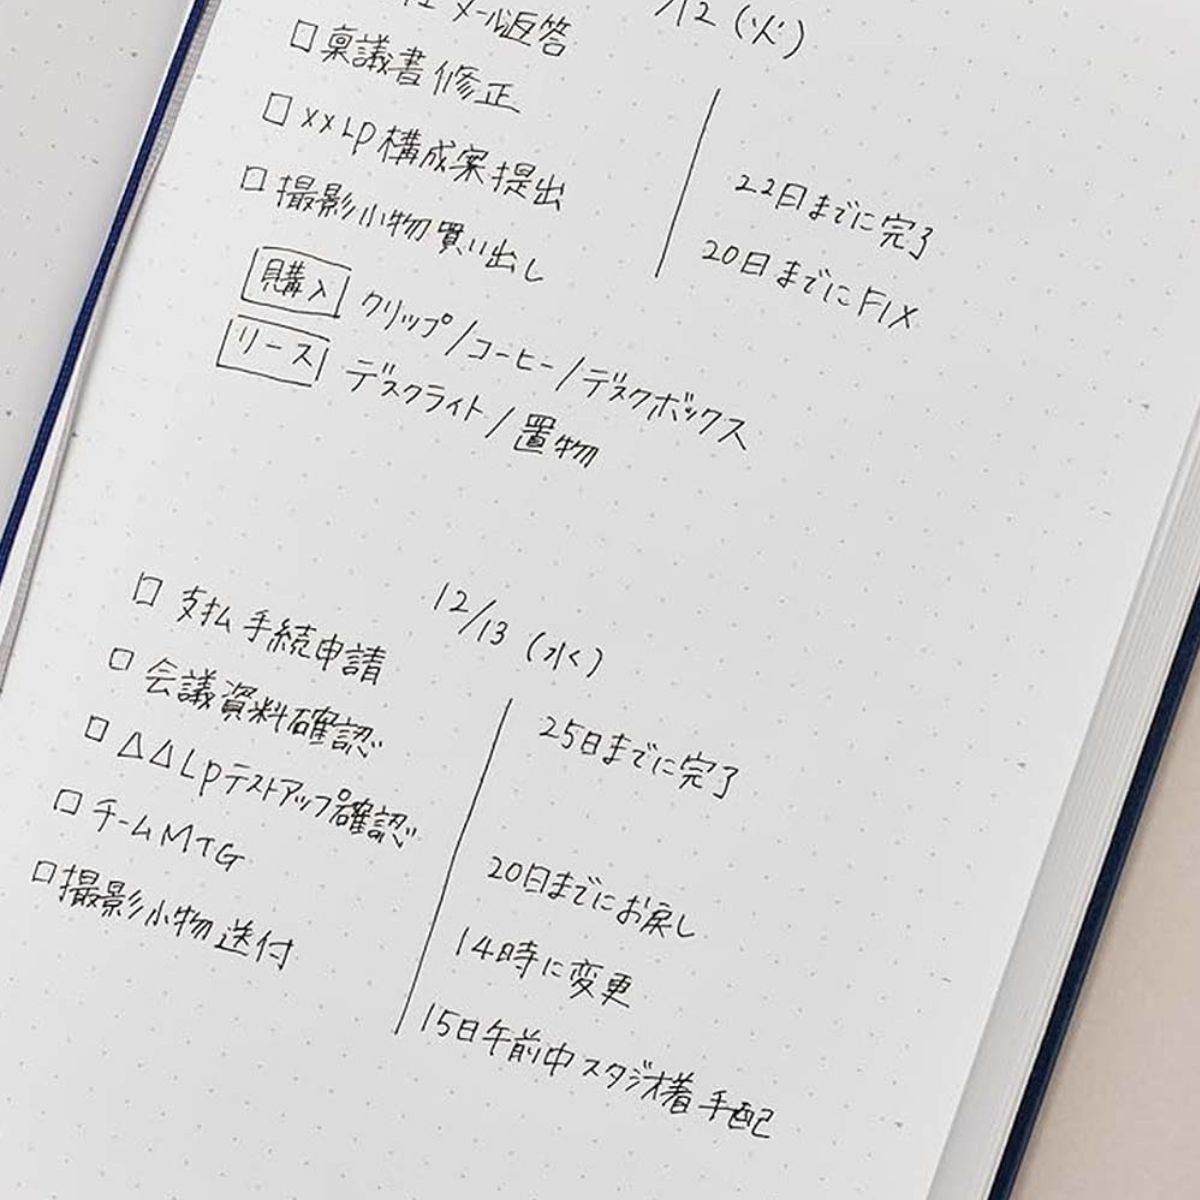 /12 (火)
メール返答
□ 稟議書修正
□ ××LP構成案提出
22日までに完了
□ 撮影小物買い出し
20日までにFIX
購入 クリップ/コーヒー/デスクボックス
リース デスクライト/置物
12/13 (水)
□ 支払手続申請
□ 会議資料確認
25日までに完了
□ △△LPテストアップ確認
□ チームMTG
20日までにお戻し
□ 撮影小物送付
14時に変更
15日午前中スタジオ着手配